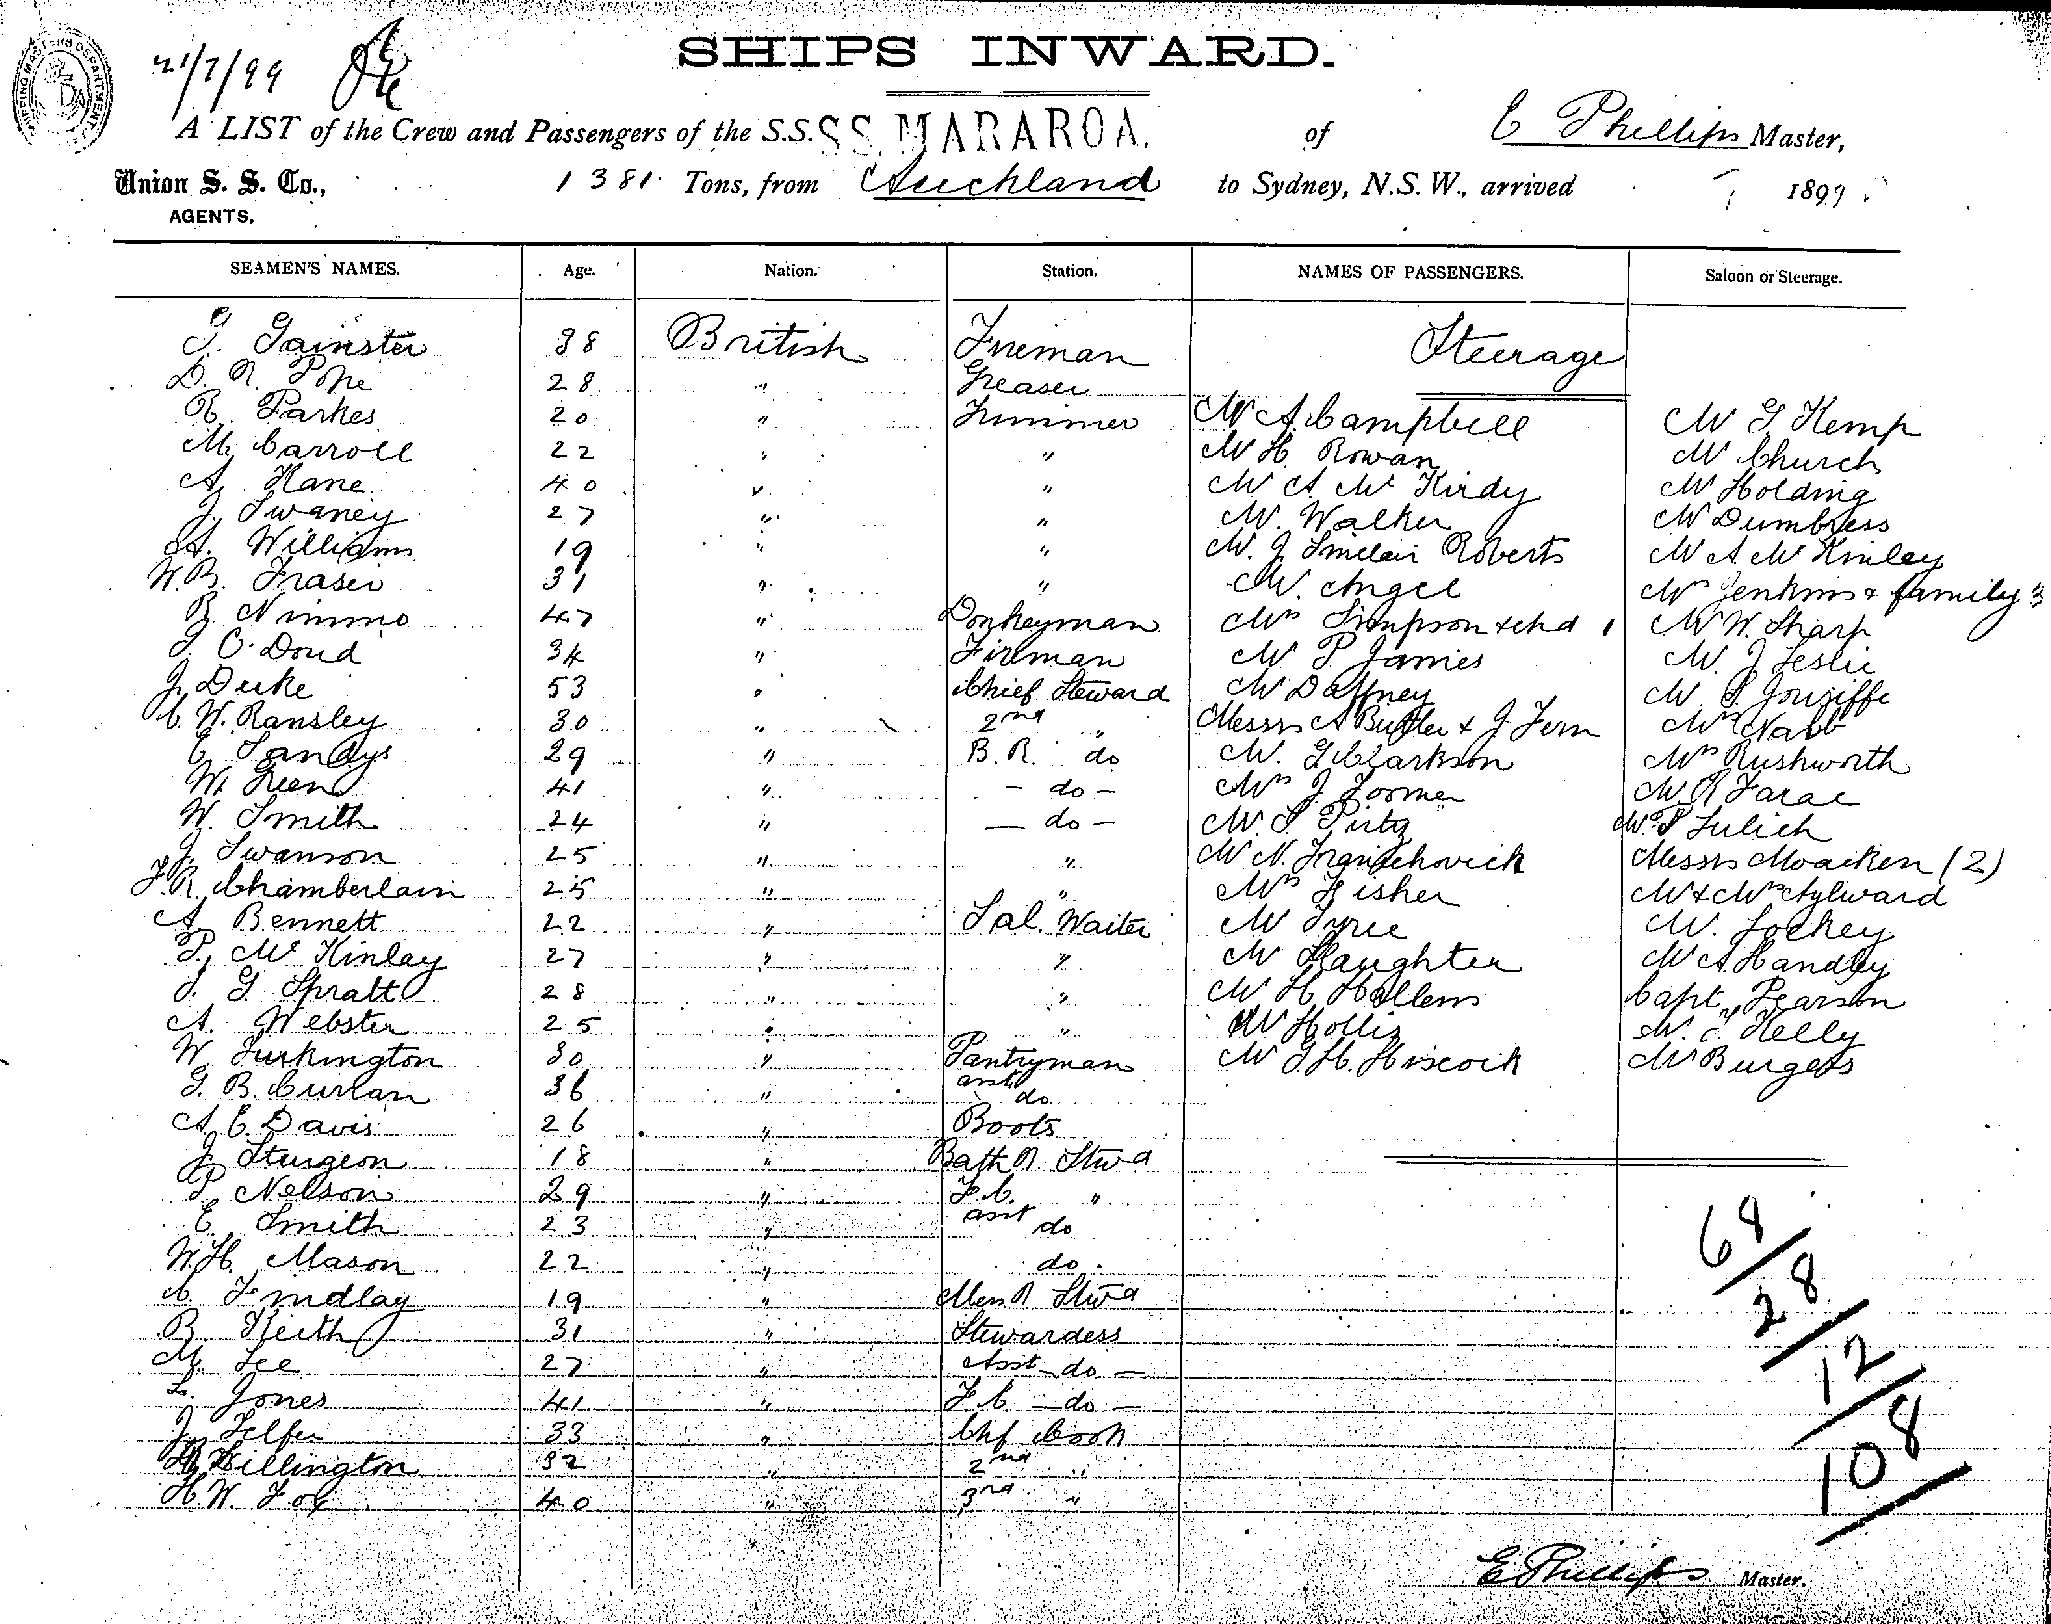 SHIPS INWARD.
21/7/99
A LIST of the Crew and Passengers of the S.S. S.S. MARAROA. of E Phillips Master,
Union S. S. Co., 1381 Tons, from Auckland to Sydney, N.S.W., arrived 1899
AGENTS.
SEAMEN'S NAMES. Age. Nation. Station. NAMES OF PASSENGERS. Saloon or Steerage.
G. Gainster 38 British Fireman Steerage
D. R. Pope 28 " Greaser
R. Parkes 20 " Trimmer Mr A. Campbell Mr G Kemp
M. Carroll 22 " " Mr H. Rowan Mr Church
A. Kane 40 " " Mr A McKirdy Mr Holding
J. Swaney 27 " " Mr. Walker Mr Dumbress
A. Williams 19 " " Mr. J Sinclair Roberts Mr A McKinley
W.B. Fraser 31 " " Mr. Angel Mrs Jenkins & family 3
R. Nimmo 47 " Donkeyman Mrs Simpson & chd 1 Mr W. Sharp
T. O'Doud 34 " Fireman Mr P. James Mr. J Leslie
J. Duke 53 " Chief Steward Mr Daffney Mr. S. Jowiffe
C. W. Ransley 30 " 2nd " Messrs A Butler & J. Fern Mrs Nabb
E. Sandys 29 " B. R. do Mr. G Clarkson Mrs Rushworth
W. Green 41 " - do - Mrs J. Toomer Mr R Farac
W. Smith 24 " - do - Mr. S Pirtz Mr P Lulich
J. Swanson 25 " " Mr N. Franichovich Messrs Moacken (2)
F. R. Chamberlain 25 " " Mrs Fisher Mr & Mrs Aylward
A. Bennett 22 " Sal. Waiter Mr Tyree Mr. Lockey
P. McKinlay 27 " " Mr Slaughter Mr A Handley
J. G Spratt 28 " " Mr H Hollems Capt. Pearson
A. Webster 25 " " Mr Hollis Mr. T Kelly
W. Turkington 30 " Pantryman Mr G. H. Hiscock Mr Burgess
G. B. Curlan 36 " asst do
A. E. Davis 26 " Boots
J. Sturgeon 18 " Bath R Stwd
P. Nelson 29 " F.C. "
E. Smith 23 " asst do
W. H. Mason 22 " do.
C. Findlay 19 " Mess R Stwd
B. Keith 31 " Stewardess
M. Lee 27 " Asst do -
L. Jones 41 " F C - do -
J. Telfer 33 " Chf Cook
Killington 32 " 2nd "
H. W. Fox 40 " 3rd "
68
28
12
108
E Phillips Master.